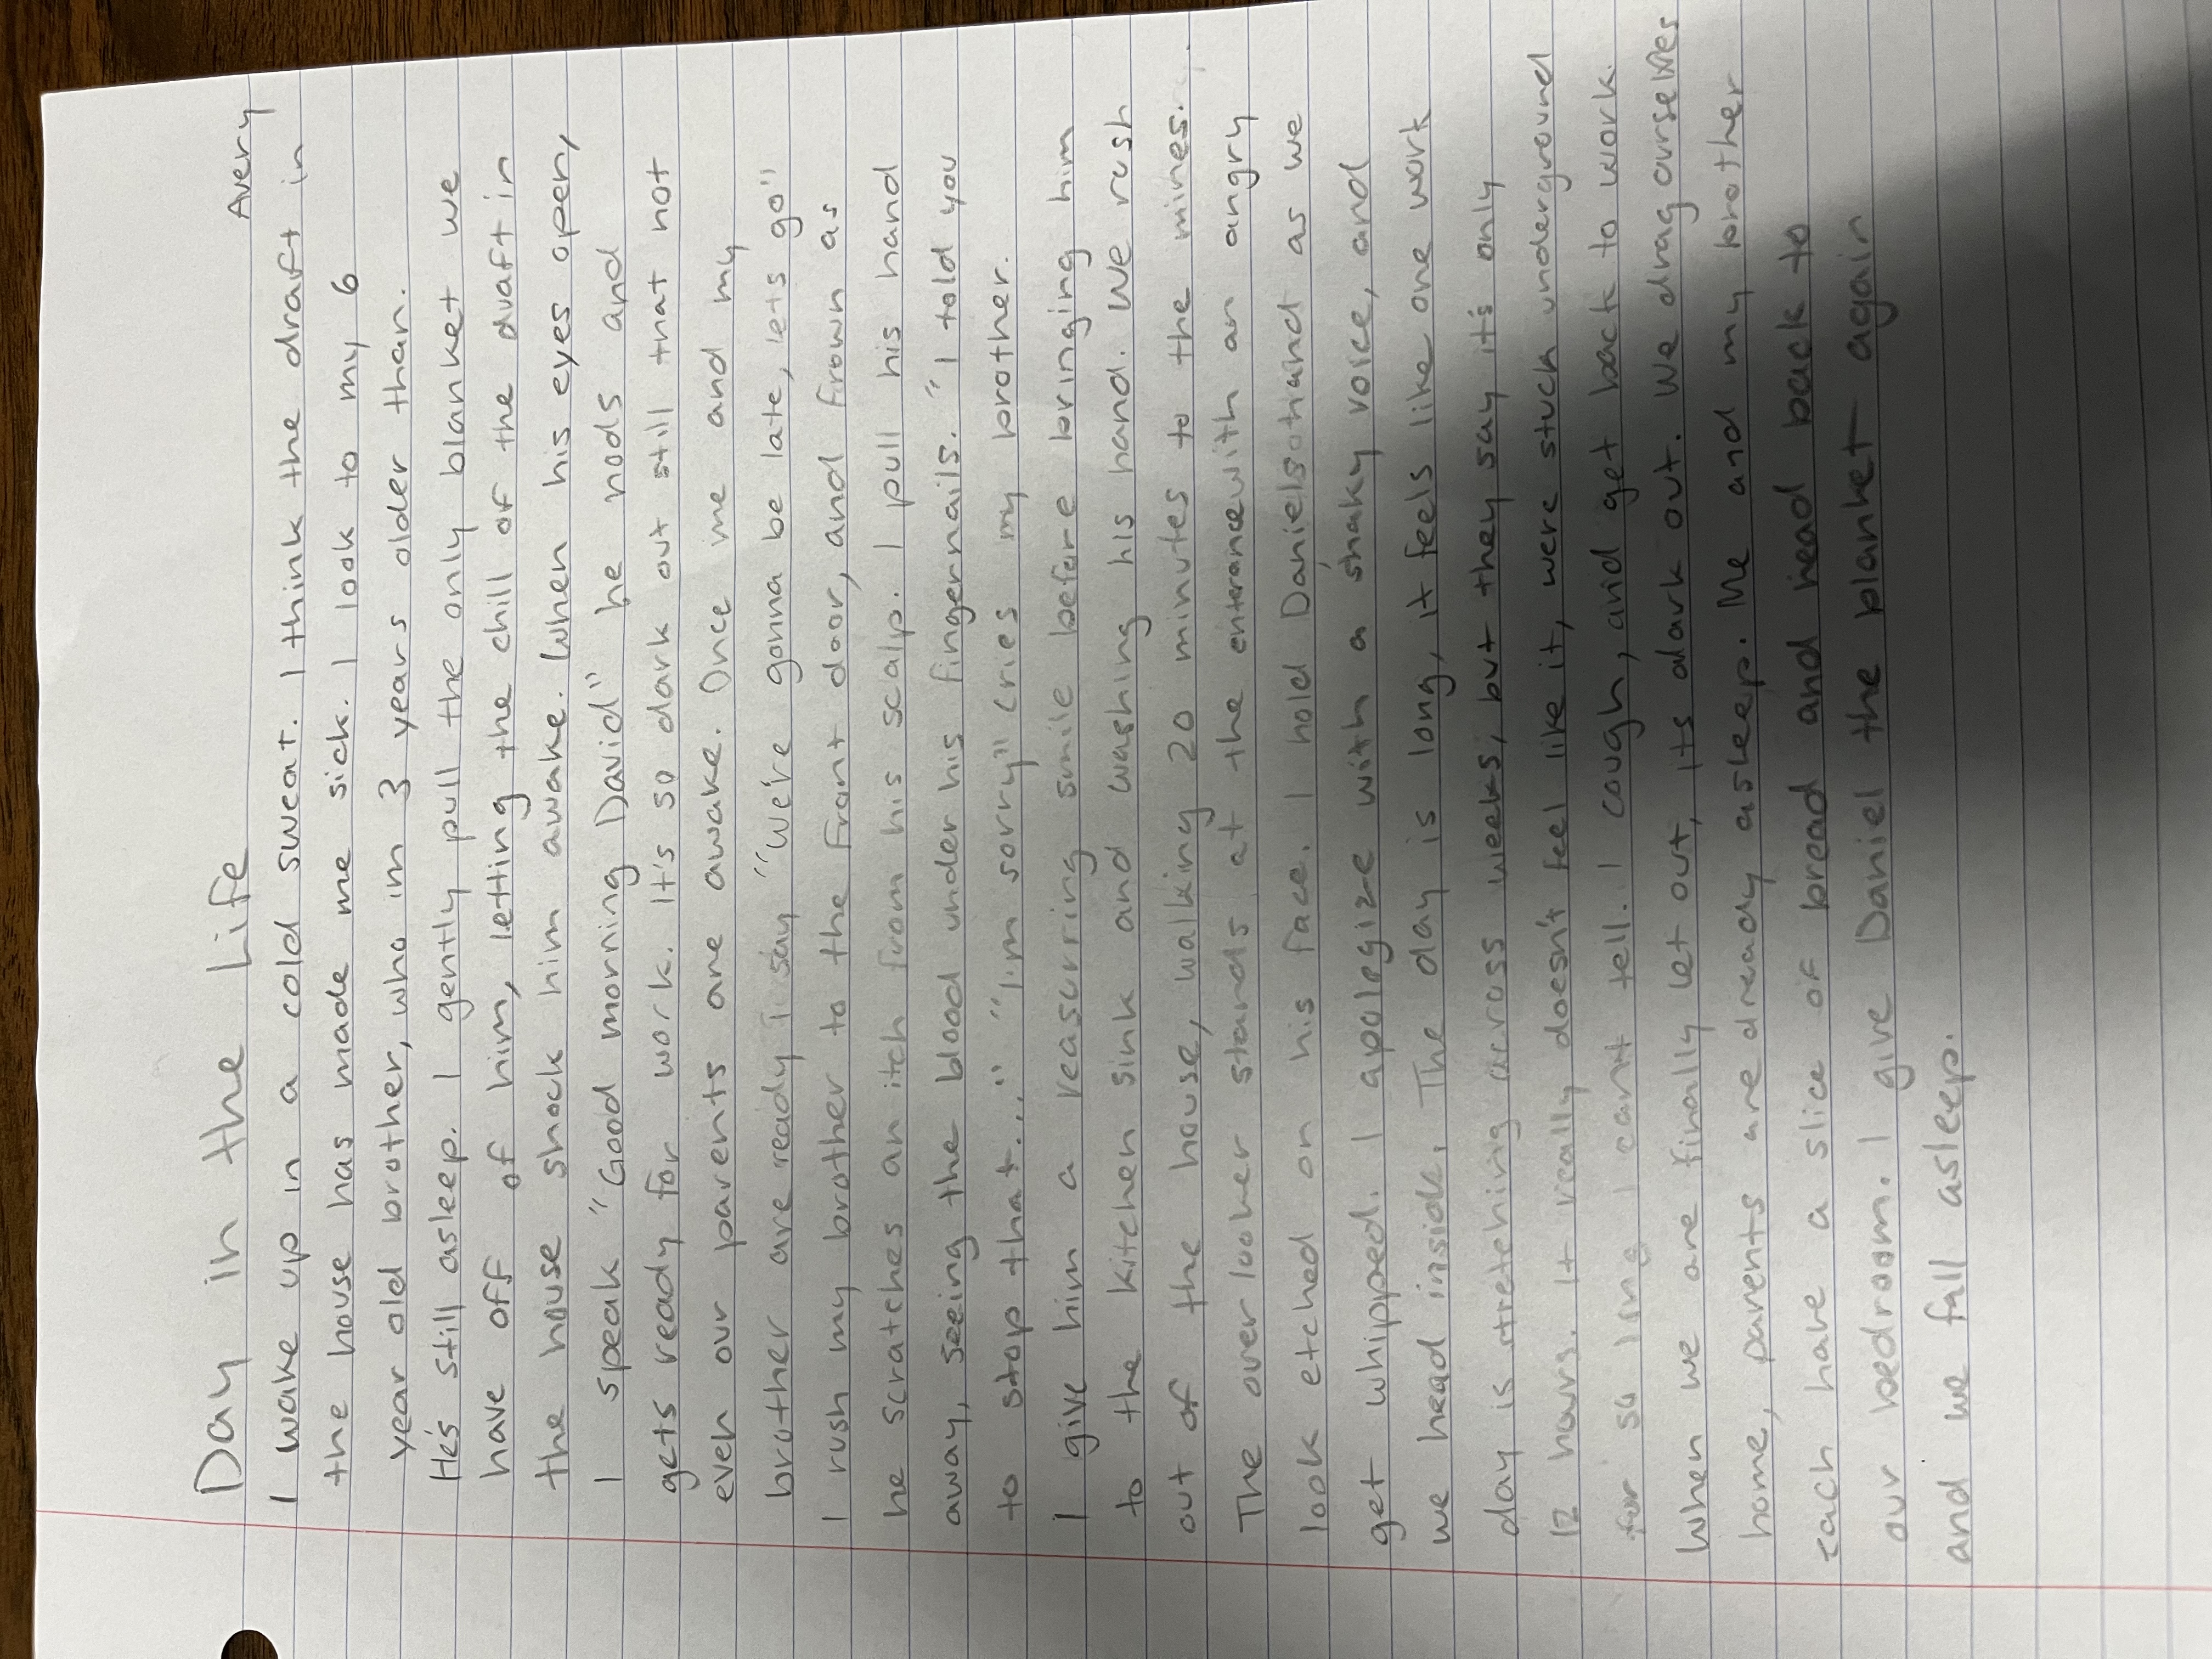 Day in the Life
Avery
I wake up in a cold sweat. I think the draft in
the house has made me sick. I look to my 6
year old brother, who im 3 years older than.
He's still asleep. I gently pull the only blanket we
have off of him, letting the chill of the draft in
the house shock him awake. When his eyes open,
I speak "Good morning David" he nods and
gets ready for work. It's so dark out still that not
even our parents are awake. Once me and my
brother are ready i say "We're gonna be late, lets go"
I rush my brother to the front door, and frown as
he scratches an itch from his scalp. I pull his hand
away, seeing the blood under his fingernails. "I told you
to stop that..." "I'm sorry" cries my brother.
I give him a reasurring smile before bringing him
to the kitchen sink and washing his hand. We rush
out of the house, walking 20 minutes to the mines.
The overlooker stands at the enterance with an angry
look etched on his face. I hold Daniels hand as we
get whipped. I apologize with a shaky voice, and
we head inside. The day is long, it feels like one work
day is stretching across weeks, but they say it's only
12 hours. It really doesn't feel like it, were stuck underground
for so long I cant tell. I cough, and get back to work.
When we are finally let out, its dark out. We drag ourselves
home, parents are already asleep. Me and my brother
each have a slice of bread and head back to
our bedroom. I give Daniel the blanket again
and we fall asleep.